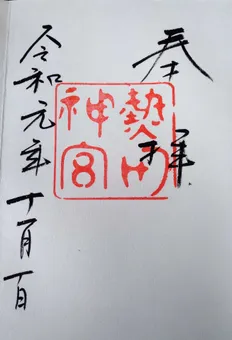 奉拝
熱田
神宮
令和元年十一月一日